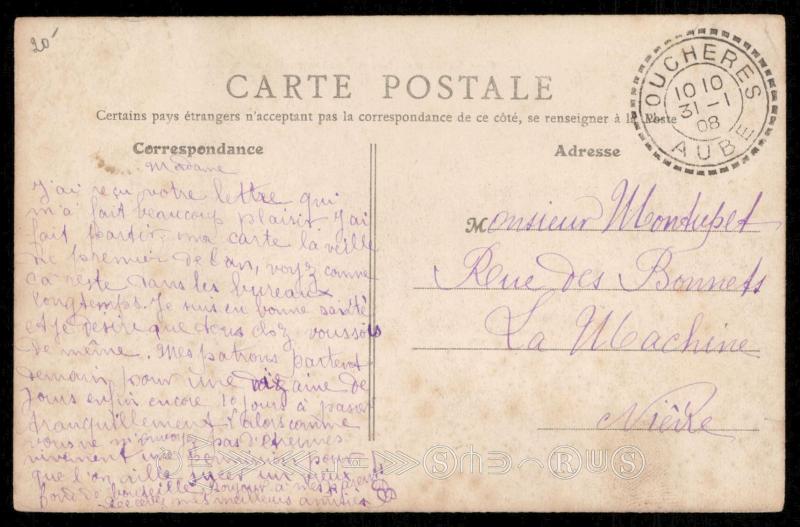 20
CARTE POSTALE
Certains pays étrangers n'acceptant pas la correspondance de ce côté, se renseigner à la Poste
Correspondance
Adresse
VOUCHERES
10 10
31 - 1
08
AUBE
Madame
J'ai reçu votre lettre qui
m'a fait beaucoup plaisir j'ai
fait partir ma carte la veille
de premier de l'an, voyz comme
ca reste dans les bureaux
longtemps. Je suis en bonne santé
et je désire que tous
de même. Mes patrons partent
demain pour une dizaine de
jours enfin encore 10 jours à passer
tranquillement alors comme
vous ne m'envoyez pas d'etrennes
vivement une pour
que l'on aille sucer un vieux
Bonjour à mes parents
mes meilleurs amitiés
Monsieur Montupet
Rue des Bonnets
La Machine
Nièvre